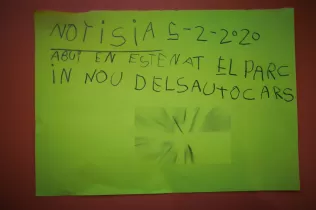 NOTISIA 5-2-2020
ABUI EN ESTENAT EL PARC
IN NOU DELSAUTOCARS